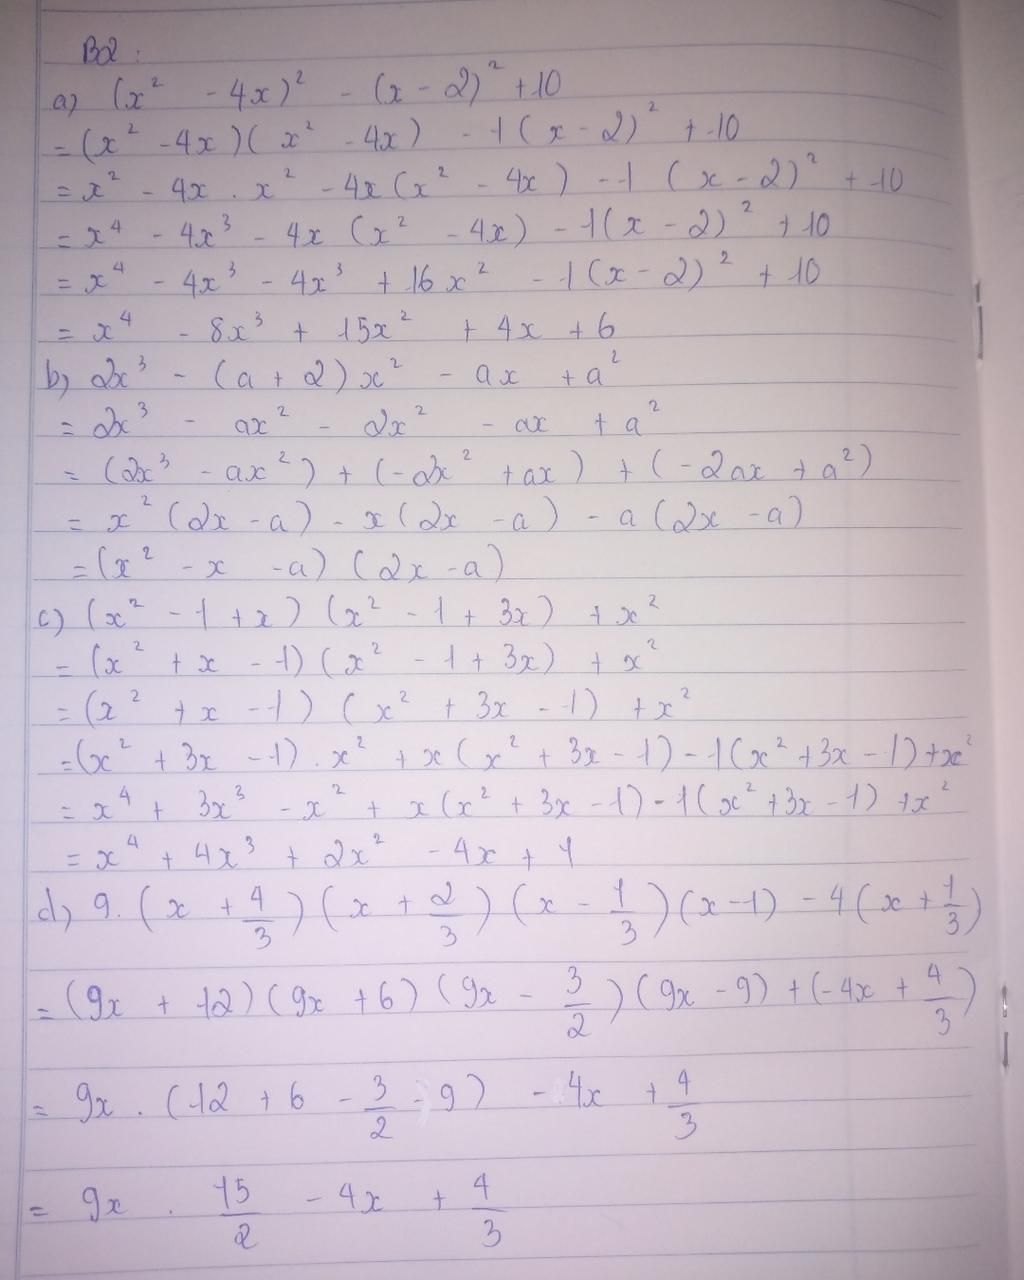 B2 :
a) (x² - 4x)² - (x - 2)² + 10
= (x² - 4x)(x² - 4x) - 1(x - 2)² + 10
= x² - 4x . x² - 4x(x² - 4x) - 1 (x - 2)² + 10
= x⁴ - 4x³ - 4x (x² - 4x) - 1(x - 2)² + 10
= x⁴ - 4x³ - 4x³ + 16x² - 1(x - 2)² + 10
= x⁴ - 8x³ + 15x² + 4x + 6
b) 2x³ - (a + 2)x² - ax + a²
= 2x³ - ax² - 2x² - ax + a²
= (2x³ - ax²) + (-2x² + ax) + (-2ax + a²)
= x²(2x - a) - x(2x - a) - a(2x - a)
= (x² - x - a)(2x - a)
c) (x² - 1 + x)(x² - 1 + 3x) + x²
= (x² + x - 1)(x² - 1 + 3x) + x²
= (x² + x - 1)(x² + 3x - 1) + x²
= (x² + 3x - 1).x² + x(x² + 3x - 1) - 1(x² + 3x - 1) + x²
= x⁴ + 3x³ - x² + x(x² + 3x - 1) - 1(x² + 3x - 1) + x²
= x⁴ + 4x³ + 2x² - 4x + 1
d) 9.(x + 4/3)(x + 2/3)(x - 1/3)(x - 1) - 4(x + 1/3)
= (9x + 12)(9x + 6)(9x - 3/2)(9x - 9) + (-4x + 4/3)
= 9x . (12 + 6 - 3/2 - 9) - 4x + 4/3
= 9x . 15/2 - 4x + 4/3